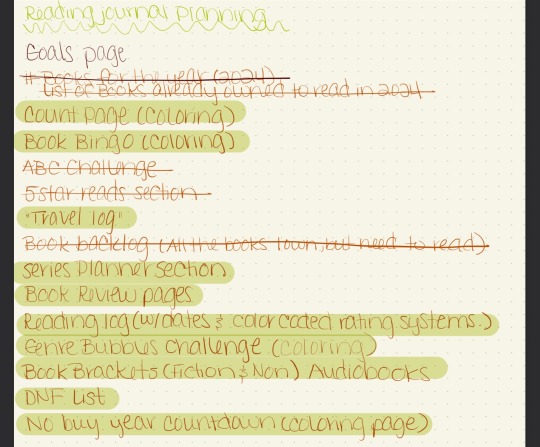 Reading journal Planning
Goals page
# Books for the year (2024)
List of Books already owned to read in 2024
Count Page (Coloring)
Book Bingo (Coloring)
ABC Challenge
5 star reads section
"Travel log"
Book backlog (All the books I own, but need to read)
series Planner section
Book Review pages
Reading log (w/dates & color coded rating systems.)
Genre Bubbles Challenge (coloring)
Book Brackets (Fiction & Non) Audiobooks
DNF List
No buy year countdown (coloring page)